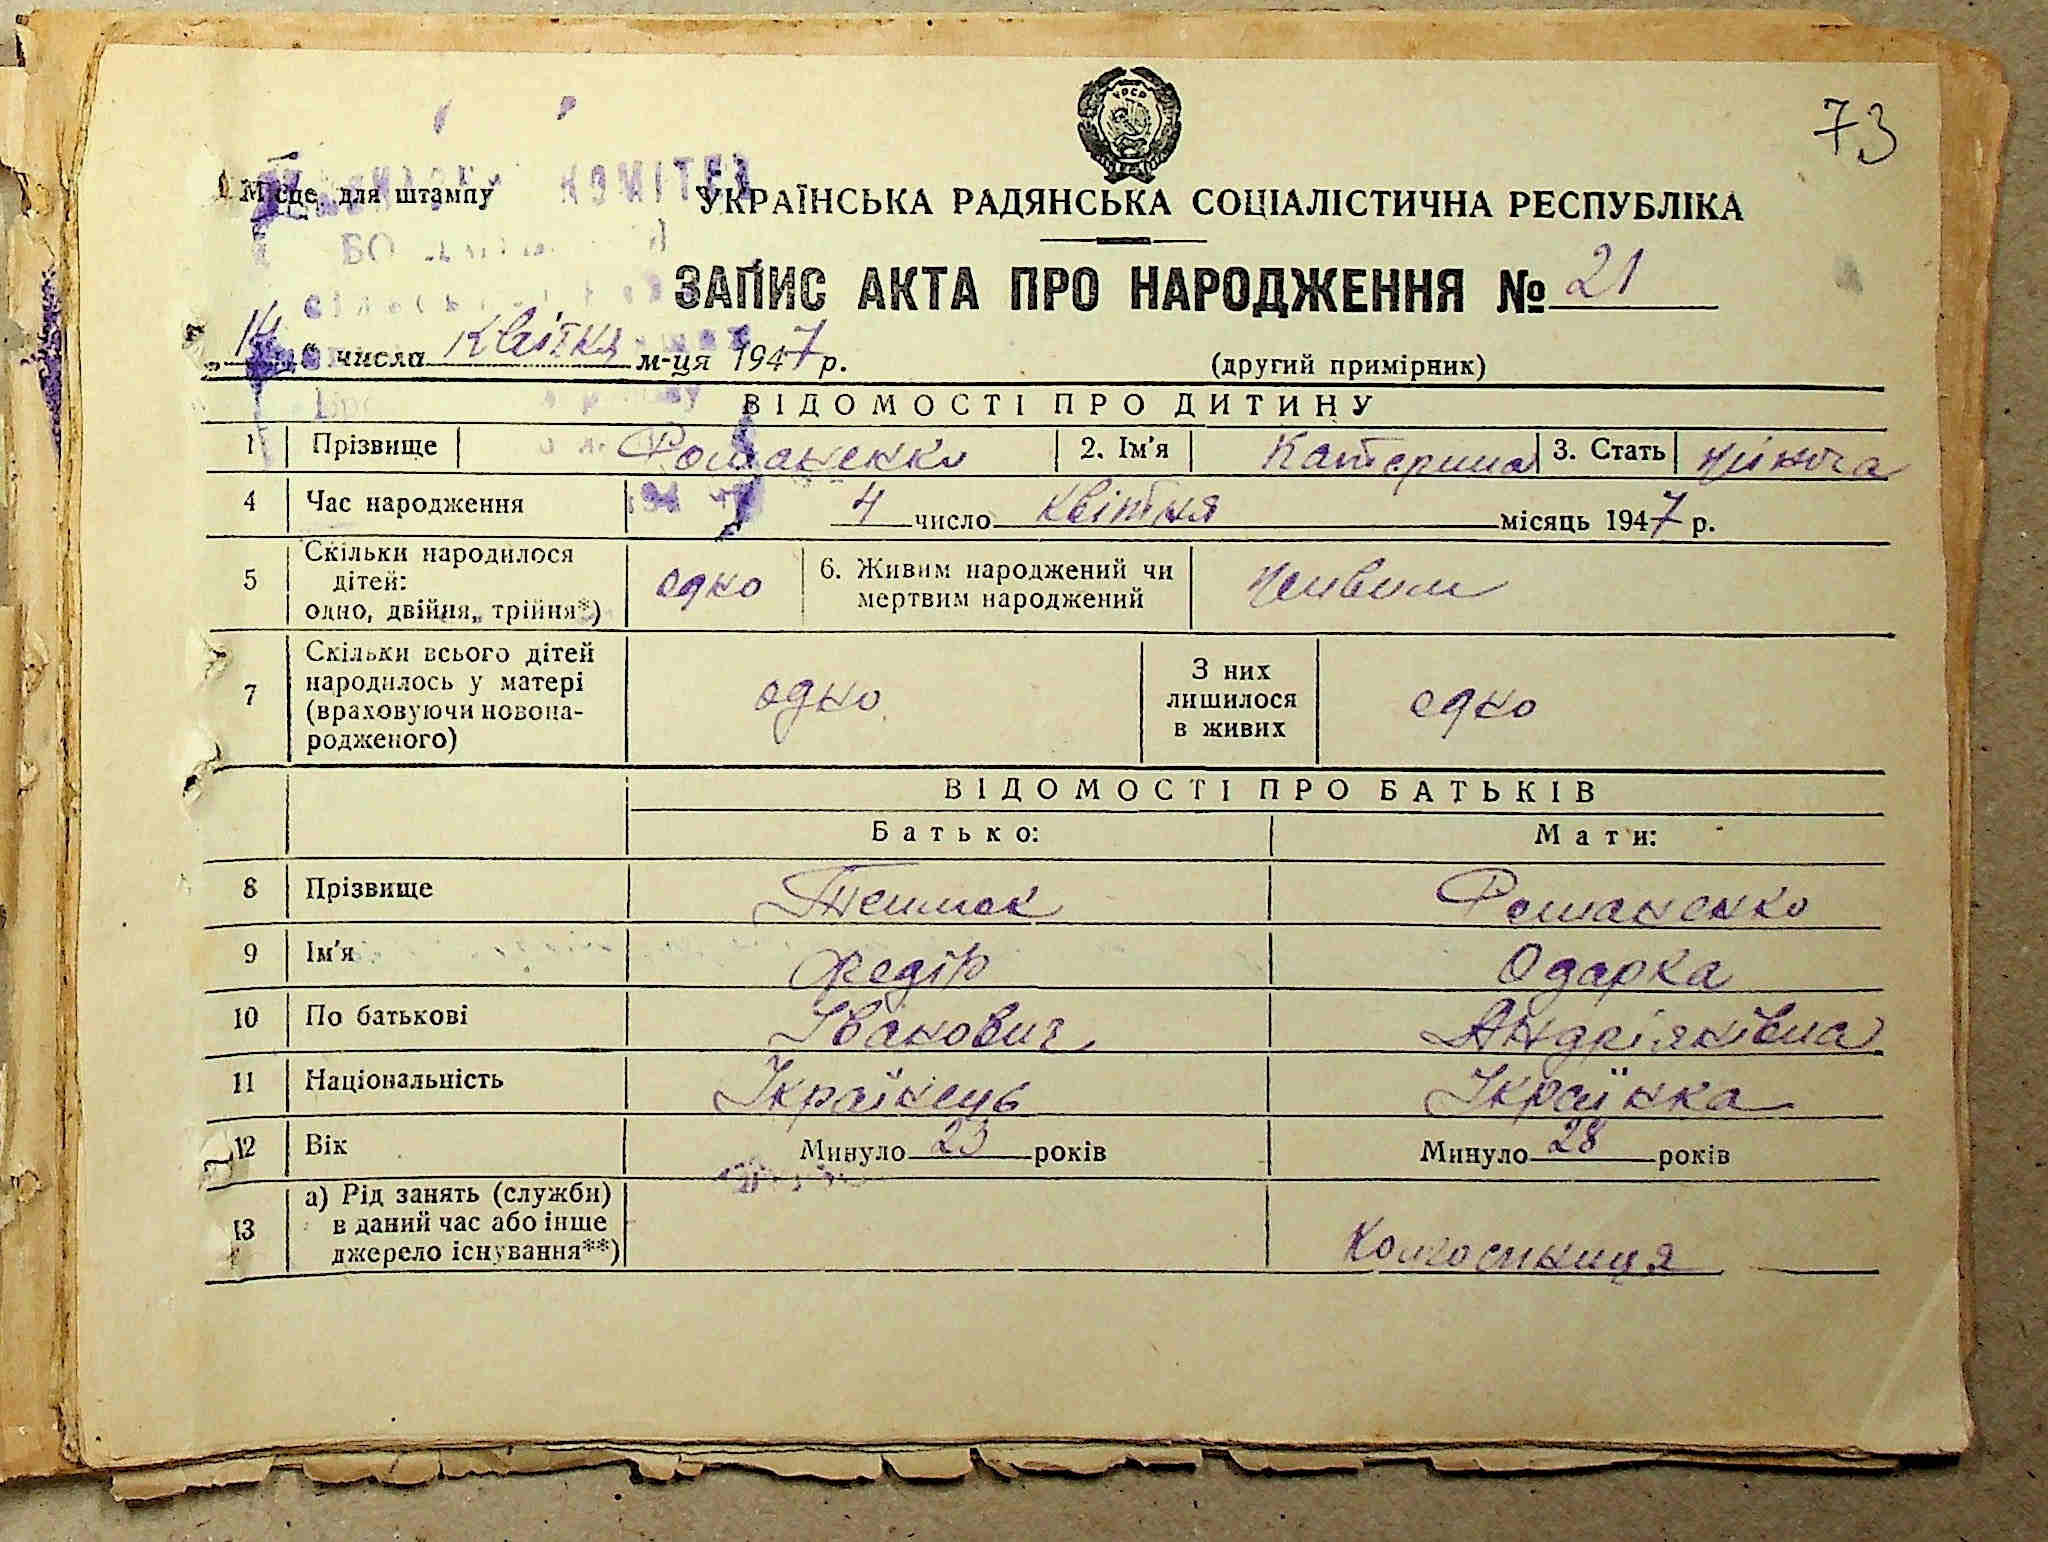 73
УРСР
Місце для штампу
КОМІТЕТ
УКРАЇНСЬКА РАДЯНСЬКА СОЦІАЛІСТИЧНА РЕСПУБЛІКА
ЗАПИС АКТА ПРО НАРОДЖЕННЯ № 21
„14“ числа квітня м-ця 1947 р.
(другий примірник)
ВІДОМОСТІ ПРО ДИТИНУ
1 Прізвище Романенко 2. Ім'я Катерина 3. Стать жіноча
4 Час народження 4 число квітня місяць 1947 р.
5 Скільки народилося дітей: одно, двійня, трійня*) одно 6. Живим народжений чи мертвим народжений живим
7 Скільки всього дітей народилось у матері (враховуючи новона-родженого) одно З них лишилося в живих одно
ВІДОМОСТІ ПРО БАТЬКІВ
Батько: Мати:
8 Прізвище Романенко
9 Ім'я Федір Одарка
10 По батькові Іванович Андріянівна
11 Національність Українець Українка
12 Вік Минуло 23 років Минуло 28 років
13 а) Рід занять (служби)
в даний час або інше
джерело існування**) Колгоспниця